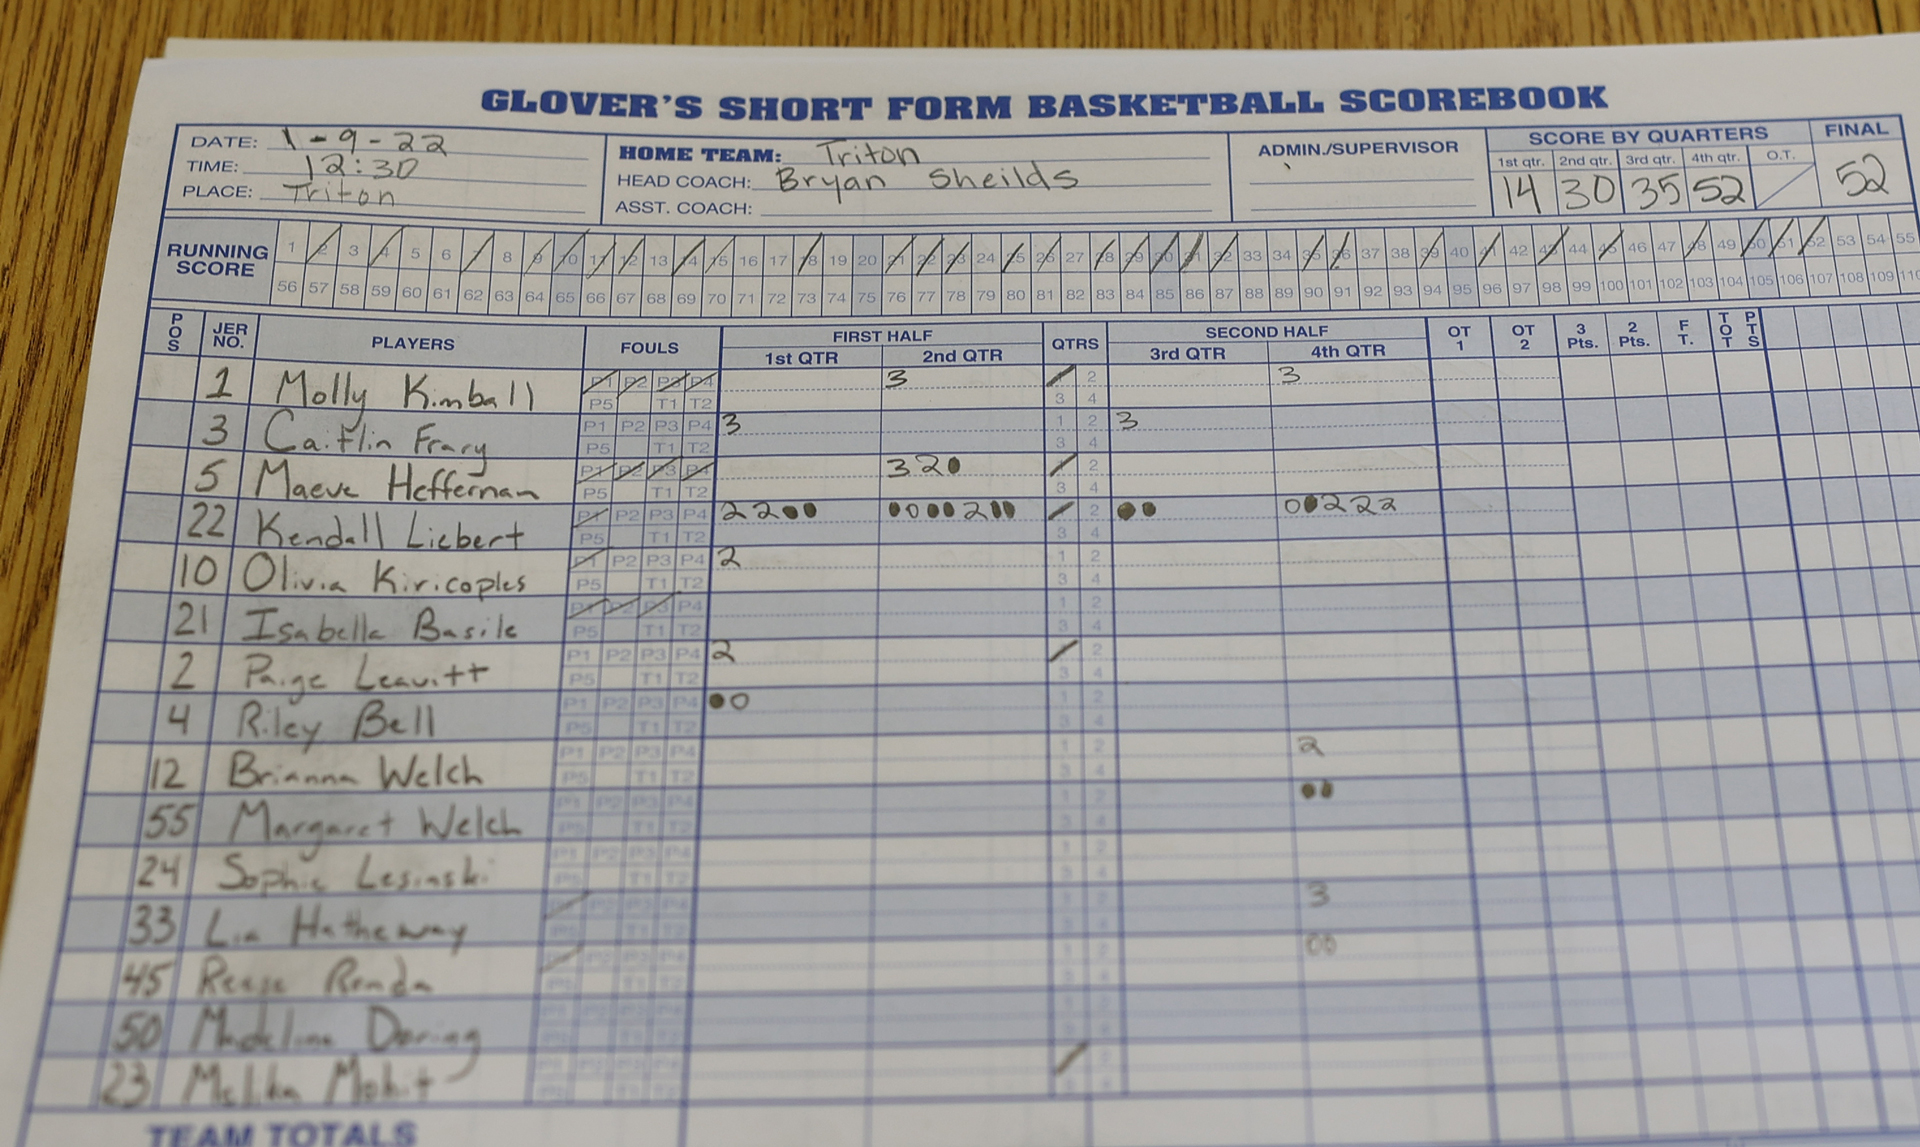 GLOVER'S SHORT FORM BASKETBALL SCOREBOOK
DATE: 1-9-22
TIME: 12:30
PLACE: Triton
HOME TEAM: Triton
HEAD COACH: Bryan Sheilds
ASST. COACH:
ADMIN./SUPERVISOR
SCORE BY QUARTERS FINAL
1st qtr. 2nd qtr. 3rd qtr. 4th qtr. O.T.
14 30 35 52 52
RUNNING SCORE
1 2 3 4 5 6 7 8 9 10 11 12 13 14 15 16 17 18 19 20 21 22 23 24 25 26 27 28 29 30 31 32 33 34 35 36 37 38 39 40 41 42 43 44 45 46 47 48 49 50 51 52 53 54 55
56 57 58 59 60 61 62 63 64 65 66 67 68 69 70 71 72 73 74 75 76 77 78 79 80 81 82 83 84 85 86 87 88 89 90 91 92 93 94 95 96 97 98 99 100 101 102 103 104 105 106 107 108 109
POS JER NO. PLAYERS FOULS FIRST HALF QTRS SECOND HALF OT 1 OT 2 3 Pts. 2 Pts. F T. TOT PTS
1st QTR 2nd QTR 3rd QTR 4th QTR
1 Molly Kimball P1 P2 P3 P4 3 2 3
P5 T1 T2 3 4
3 Caitlin Frary P1 P2 P3 P4 3 1 2 3
P5 T1 T2 3 4
5 Maeve Heffernan P1 P2 P3 P4 3 2 2
P5 T1 T2 3 4
22 Kendall Liebert P1 P2 P3 P4 2 2 0 2 2 0 2 2 2
P5 T1 T2 3 4
10 Olivia Kiricoples P1 P2 P3 P4 2 1 2
P5 T1 T2 3 4
21 Isabella Basile P1 P2 P3 P4 1 2
P5 T1 T2 3 4
2 Paige Leavitt P1 P2 P3 P4 2 2
P5 T1 T2 3 4
4 Riley Bell P1 P2 P3 P4 0 1 2
P5 T1 T2 3 4
12 Brianna Welch P1 P2 P3 P4 1 2 2
P5 T1 T2 3 4
55 Margaret Welch P1 P2 P3 P4 1 2
P5 T1 T2 3 4
24 Sophie Lesinski P1 P2 P3 P4 1 2
P5 T1 T2
33 Lia Hatheway 3
45 Reese Renda 00
50 Madeline Doring
23 Melika Mohit
TEAM TOTALS